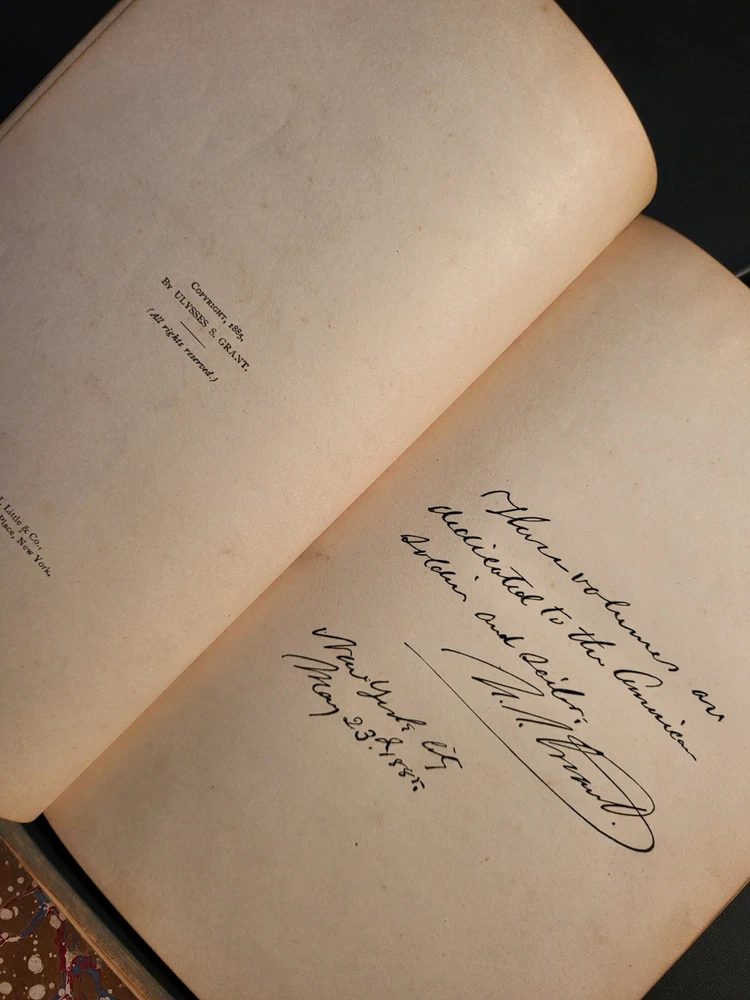 COPYRIGHT, 1885,
BY ULYSSES S. GRANT.
(All rights reserved.)
Little & Co.,
Place, New York.
These volumes are
dedicated to the American
soldier and sailor.
U. S. Grant.
New York City
May 23d. 1885.